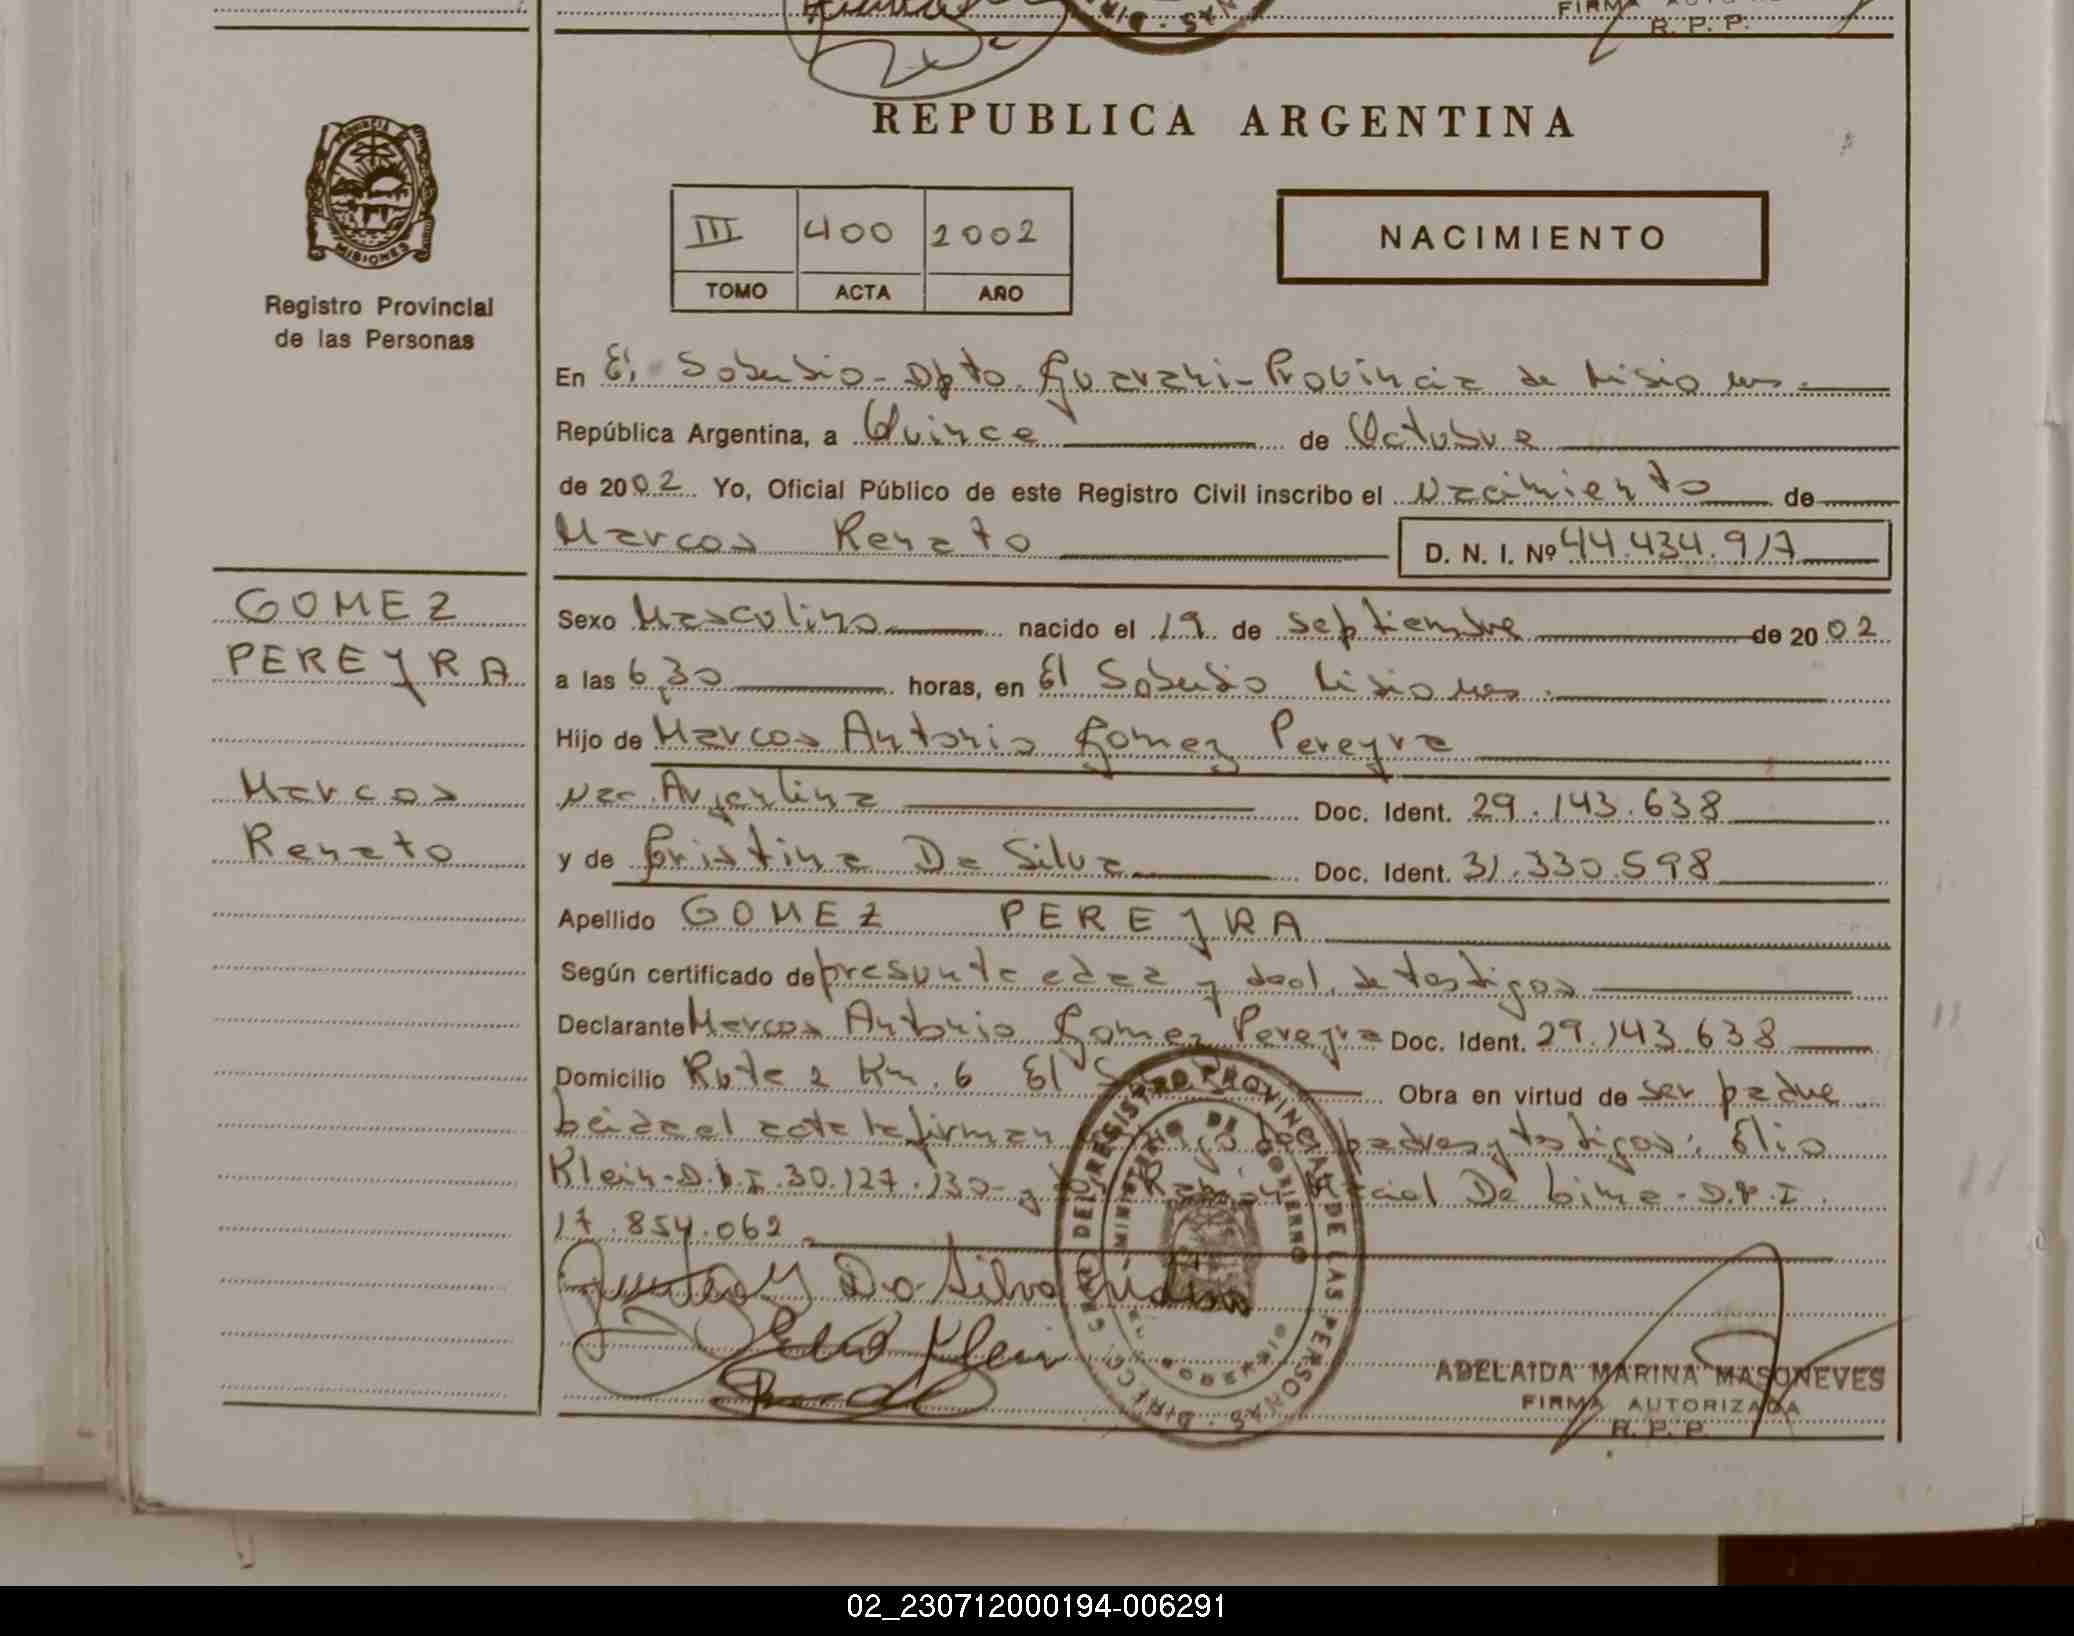 FIRMA
R. P. P.
REPUBLICA ARGENTINA
PROVINCIA
MISIONES
Registro Provincial
de las Personas
III 400 2002
TOMO ACTA AÑO
NACIMIENTO
En El Soberbio - Dpto Guarani - Provincia de Misiones.
República Argentina, a Quince de Octubre
de 2002 Yo, Oficial Público de este Registro Civil inscribo el Nacimiento de
Marcos Renato D. N. I. Nº 44.434.917
GOMEZ
PEREYRA
Marcos
Renato
Sexo Masculino nacido el 19 de Septiembre de 2002
a las 6,30 horas, en El Soberbio Misiones.
Hijo de Marcos Antonio Gomez Pereyra
Nac. Argentina Doc. Ident. 29.143.638
y de Cristina Da Silva Doc. Ident. 31.330.598
Apellido GOMEZ PEREYRA
Según certificado de presunta edad y decl. de testigos
Declarante Marcos Antonio Gomez Pereyra Doc. Ident. 29.143.638
Domicilio Ruta 2 Km. 6 El Obra en virtud de ser padre
Leida el acta la firman los padres y testigos: Elio
Klein - D.N.I. 30.127.130 - y De Lima - D.N.I.
17.854.062
Da Silva Cristina
Elio Klein
DEL REGISTRO PROVINCIAL DE LAS PERSONAS
MINISTERIO DE GOBIERNO
ADELAIDA MARINA MASONEVES
FIRMA AUTORIZADA
R. P. P.
02_230712000194-006291